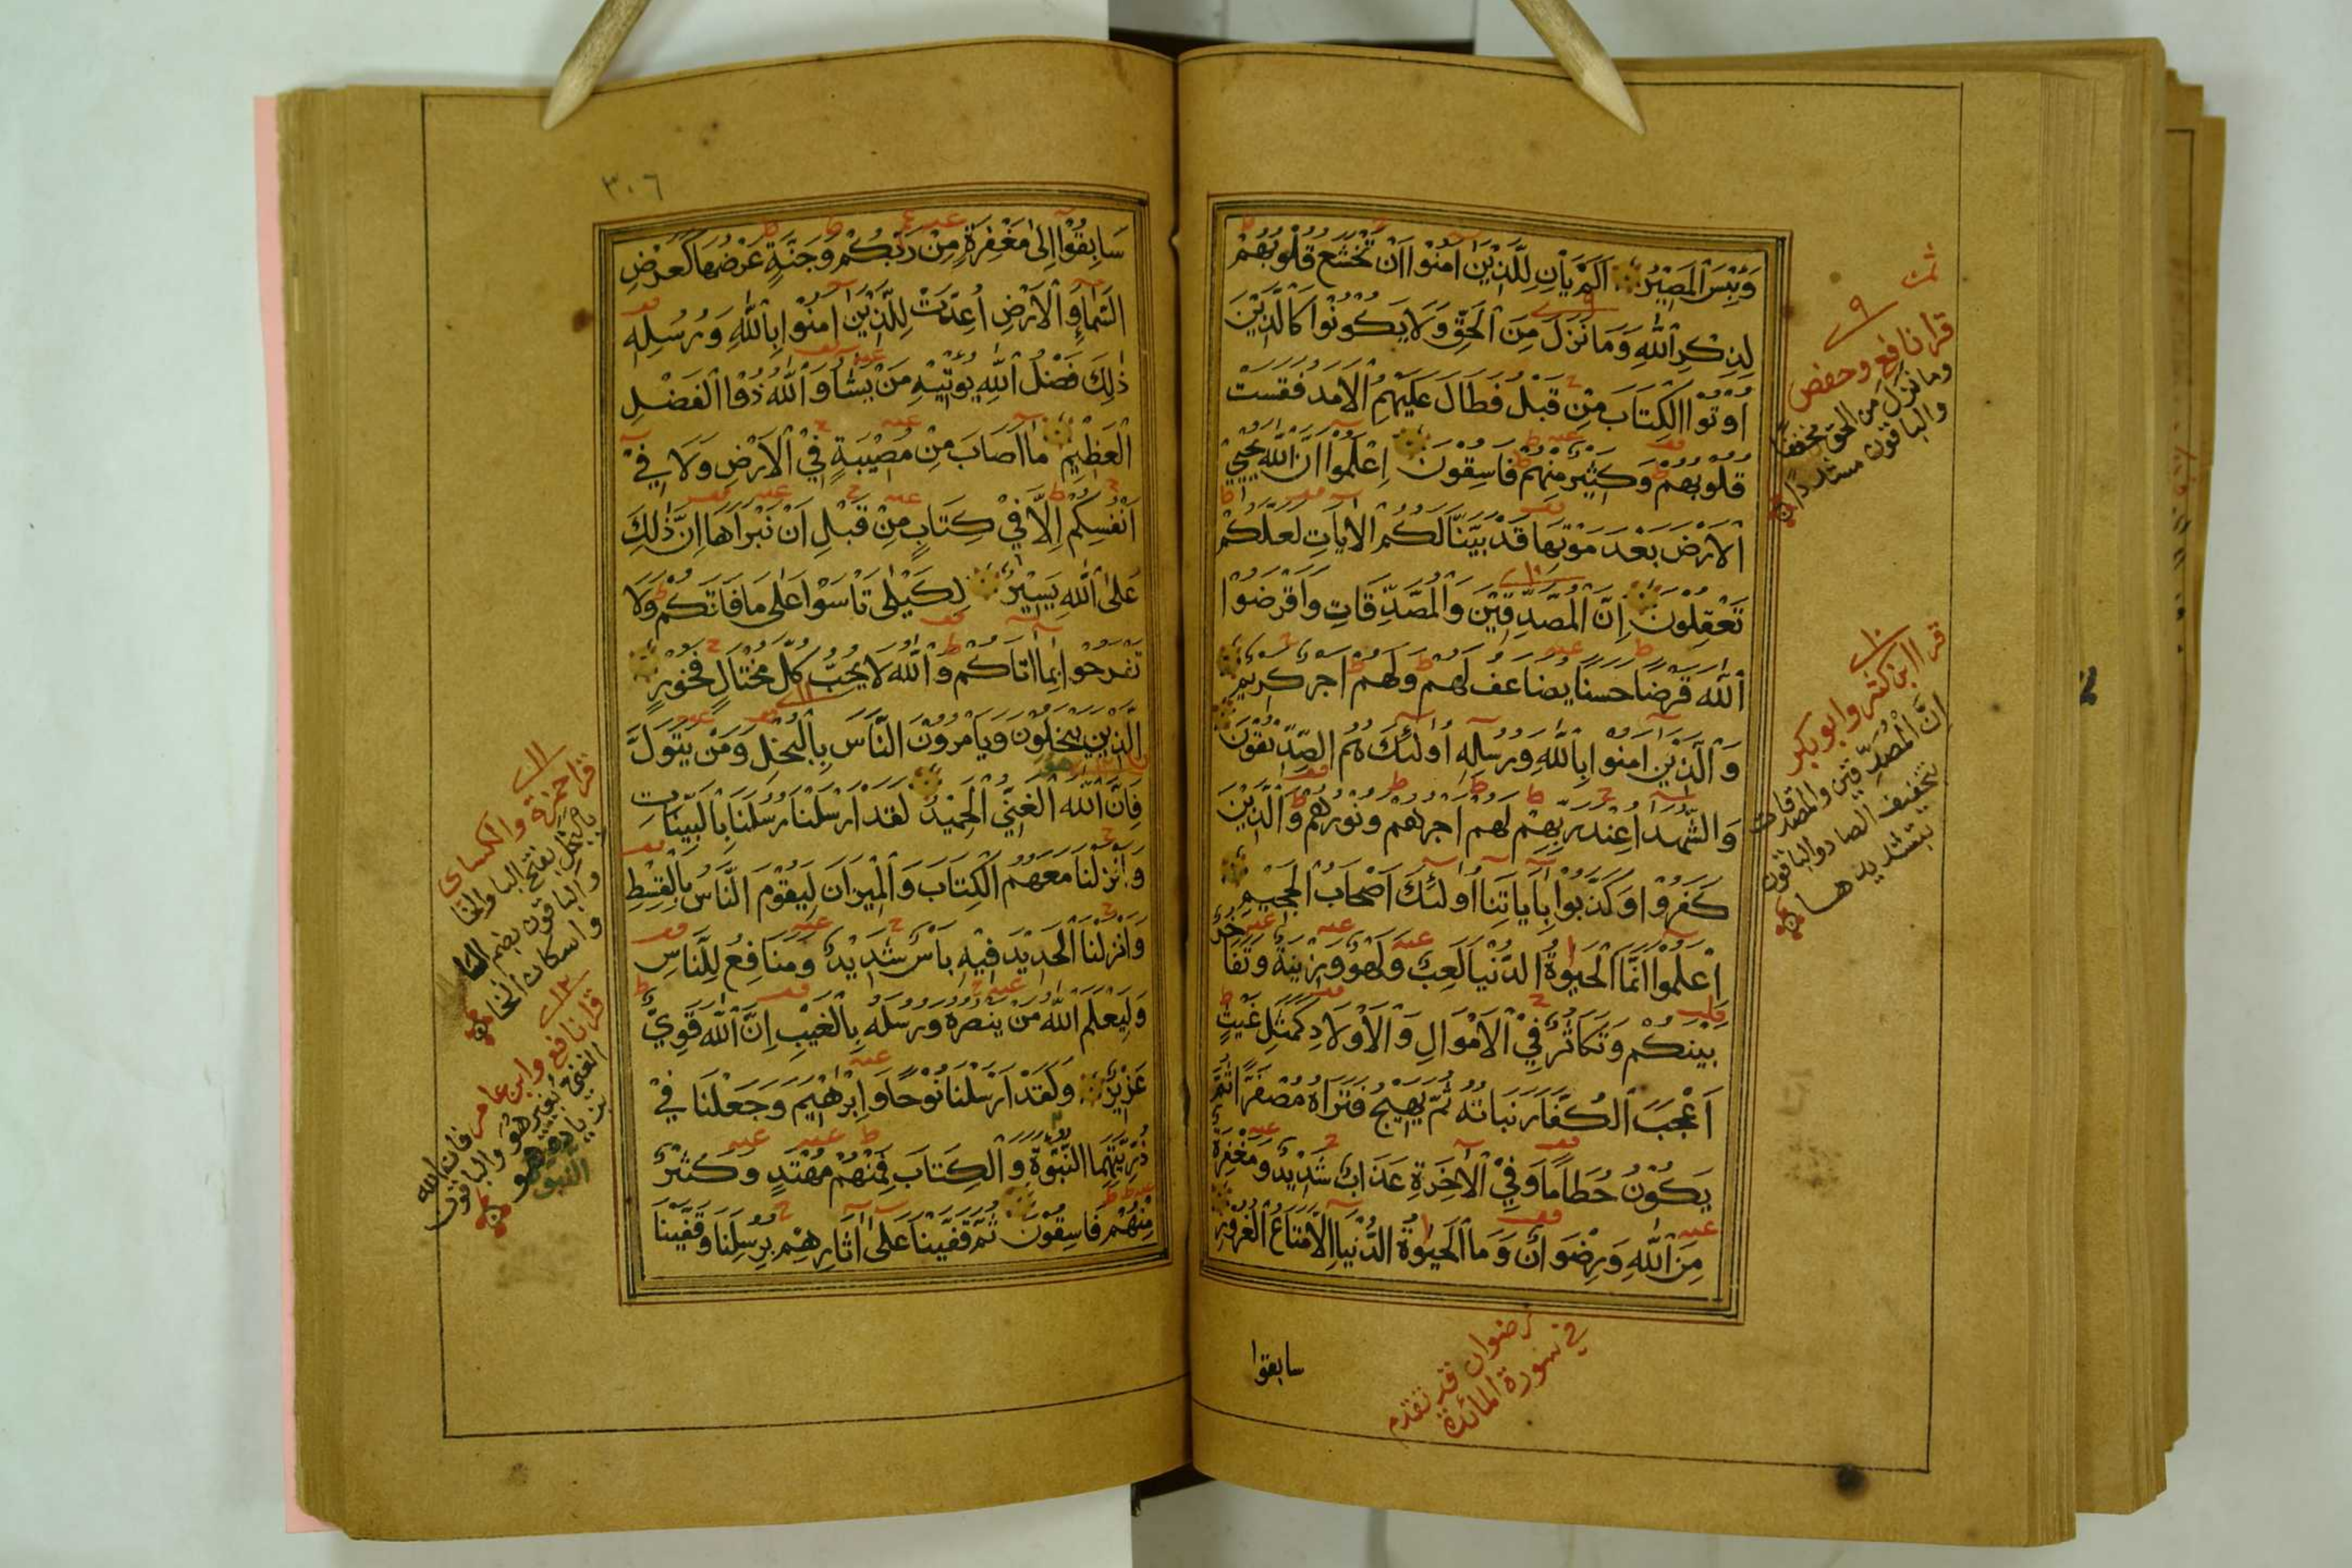 وَبِئْسَ الْمَصِيْرُ اَلَمْ يَاْنِ لِلَّذِيْنَ اٰمَنُوْا اَنْ تَخْشَعَ قُلُوْبُهُمْ
لِذِكْرِ اللّٰهِ وَمَا نَزَلَ مِنَ الْحَقِّ وَلَا يَكُوْنُوْا كَالَّذِيْنَ
اُوْتُوْا الْكِتَابَ مِنْ قَبْلُ فَطَالَ عَلَيْهِمُ الْاَمَدُ فَقَسَتْ
قُلُوْبُهُمْ وَكَثِيْرٌ مِنْهُمْ فَاسِقُوْنَ اِعْلَمُوْا اَنَّ اللّٰهَ يُحْيِي
الْاَرْضَ بَعْدَ مَوْتِهَا قَدْ بَيَّنَّا لَكُمُ الْاٰيَاتِ لَعَلَّكُمْ
تَعْقِلُوْنَ اِنَّ الْمُصَّدِّقِيْنَ وَالْمُصَّدِّقَاتِ وَاَقْرَضُوْا
اللّٰهَ قَرْضًا حَسَنًا يُضَاعَفُ لَهُمْ وَلَهُمْ اَجْرٌ كَرِيْمٌ
وَالَّذِيْنَ اٰمَنُوْا بِاللّٰهِ وَرُسُلِهِ اُولٰئِكَ هُمُ الصِّدِّيْقُوْنَ
وَالشُّهَدَاءُ عِنْدَ رَبِّهِمْ لَهُمْ اَجْرُهُمْ وَنُوْرُهُمْ وَالَّذِيْنَ
كَفَرُوْا وَكَذَّبُوْا بِاٰيَاتِنَا اُولٰئِكَ اَصْحَابُ الْجَحِيْمِ
اِعْلَمُوْا اَنَّمَا الْحَيٰوةُ الدُّنْيَا لَعِبٌ وَلَهْوٌ وَزِيْنَةٌ وَتَفَاخُرٌ
بَيْنَكُمْ وَتَكَاثُرٌ فِيْ الْاَمْوَالِ وَالْاَوْلَادِ كَمَثَلِ غَيْثٍ
اَعْجَبَ الْكُفَّارَ نَبَاتُهُ ثُمَّ يَهِيْجُ فَتَرَاهُ مُصْفَرًّا ثُمَّ
يَكُوْنُ حُطَامًا وَفِيْ الْاٰخِرَةِ عَذَابٌ شَدِيْدٌ وَمَغْفِرَةٌ
مِنَ اللّٰهِ وَرِضْوَانٌ وَمَا الْحَيٰوةُ الدُّنْيَا اِلَّا مَتَاعُ الْغُرُوْرِ
سابقوا
رضوان قد تقدم
في سورة المائدة
٩
قرا نافع وحفص
وما نَزَلَ من الحق مخففا
والباقون مشددا
١٠
قرا ابن كثير وابو بكر
اِنَّ الْمُصَدِّقِيْنَ والمُصَدِّقات
بتخفيف الصاد والباقون
بتشديدها
٣٠٦
سَابِقُوْا اِلٰى مَغْفِرَةٍ مِنْ رَبِّكُمْ وَجَنَّةٍ عَرْضُهَا كَعَرْضِ
السَّمَاءِ وَالْاَرْضِ اُعِدَّتْ لِلَّذِيْنَ اٰمَنُوْا بِاللّٰهِ وَرُسُلِهِ
ذٰلِكَ فَضْلُ اللّٰهِ يُؤْتِيْهِ مَنْ يَشَاءُ وَاللّٰهُ ذُوْا الْفَضْلِ
الْعَظِيْمِ مَا اَصَابَ مِنْ مُصِيْبَةٍ فِيْ الْاَرْضِ وَلَا فِيْ
اَنْفُسِكُمْ اِلَّا فِيْ كِتَابٍ مِنْ قَبْلِ اَنْ نَبْرَاَهَا اِنَّ ذٰلِكَ
عَلٰى اللّٰهِ يَسِيْرٌ لِكَيْلٰى تَاْسَوْا عَلٰى مَا فَاتَكُمْ وَلَا
تَفْرَحُوْا بِمَا اٰتَاكُمْ وَاللّٰهُ لَا يُحِبُّ كُلَّ مُخْتَالٍ فَخُوْرٍ
الَّذِيْنَ يَبْخَلُوْنَ وَيَاْمُرُوْنَ النَّاسَ بِالْبُخْلِ وَمَنْ يَتَوَلَّ
فَاِنَّ اللّٰهَ الْغَنِيُّ الْحَمِيْدُ لَقَدْ اَرْسَلْنَا رُسُلَنَا بِالْبَيِّنَاتِ
وَاَنْزَلْنَا مَعَهُمُ الْكِتَابَ وَالْمِيْزَانَ لِيَقُوْمَ النَّاسُ بِالْقِسْطِ
وَاَنْزَلْنَا الْحَدِيْدَ فِيْهِ بَاْسٌ شَدِيْدٌ وَمَنَافِعُ لِلنَّاسِ
وَلِيَعْلَمَ اللّٰهُ مَنْ يَنْصُرُهُ وَرُسُلَهُ بِالْغَيْبِ اِنَّ اللّٰهَ قَوِيٌّ
عَزِيْزٌ وَلَقَدْ اَرْسَلْنَا نُوْحًا وَاِبْرٰهِيْمَ وَجَعَلْنَا فِيْ
ذُرِّيَّتِهِمَا النُّبُوَّةَ وَالْكِتَابَ فَمِنْهُمْ مُهْتَدٍ وَكَثِيْرٌ
مِنْهُمْ فَاسِقُوْنَ ثُمَّ قَفَّيْنَا عَلٰى اٰثَارِهِمْ بِرُسُلِنَا وَقَفَّيْنَا
١١
قرا حمزة والكسائ
بالبخل بفتح البا والخا
والباقون بضم البا
واسكان الخا
١٢
قرا نافع وابن عامر فان الله
الغني بغير هو والباقون
بزيادة هو
النبوة